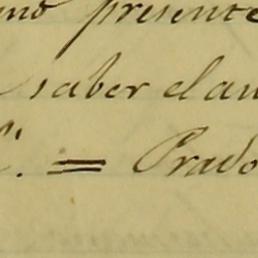 presente
saber el an
= Prado